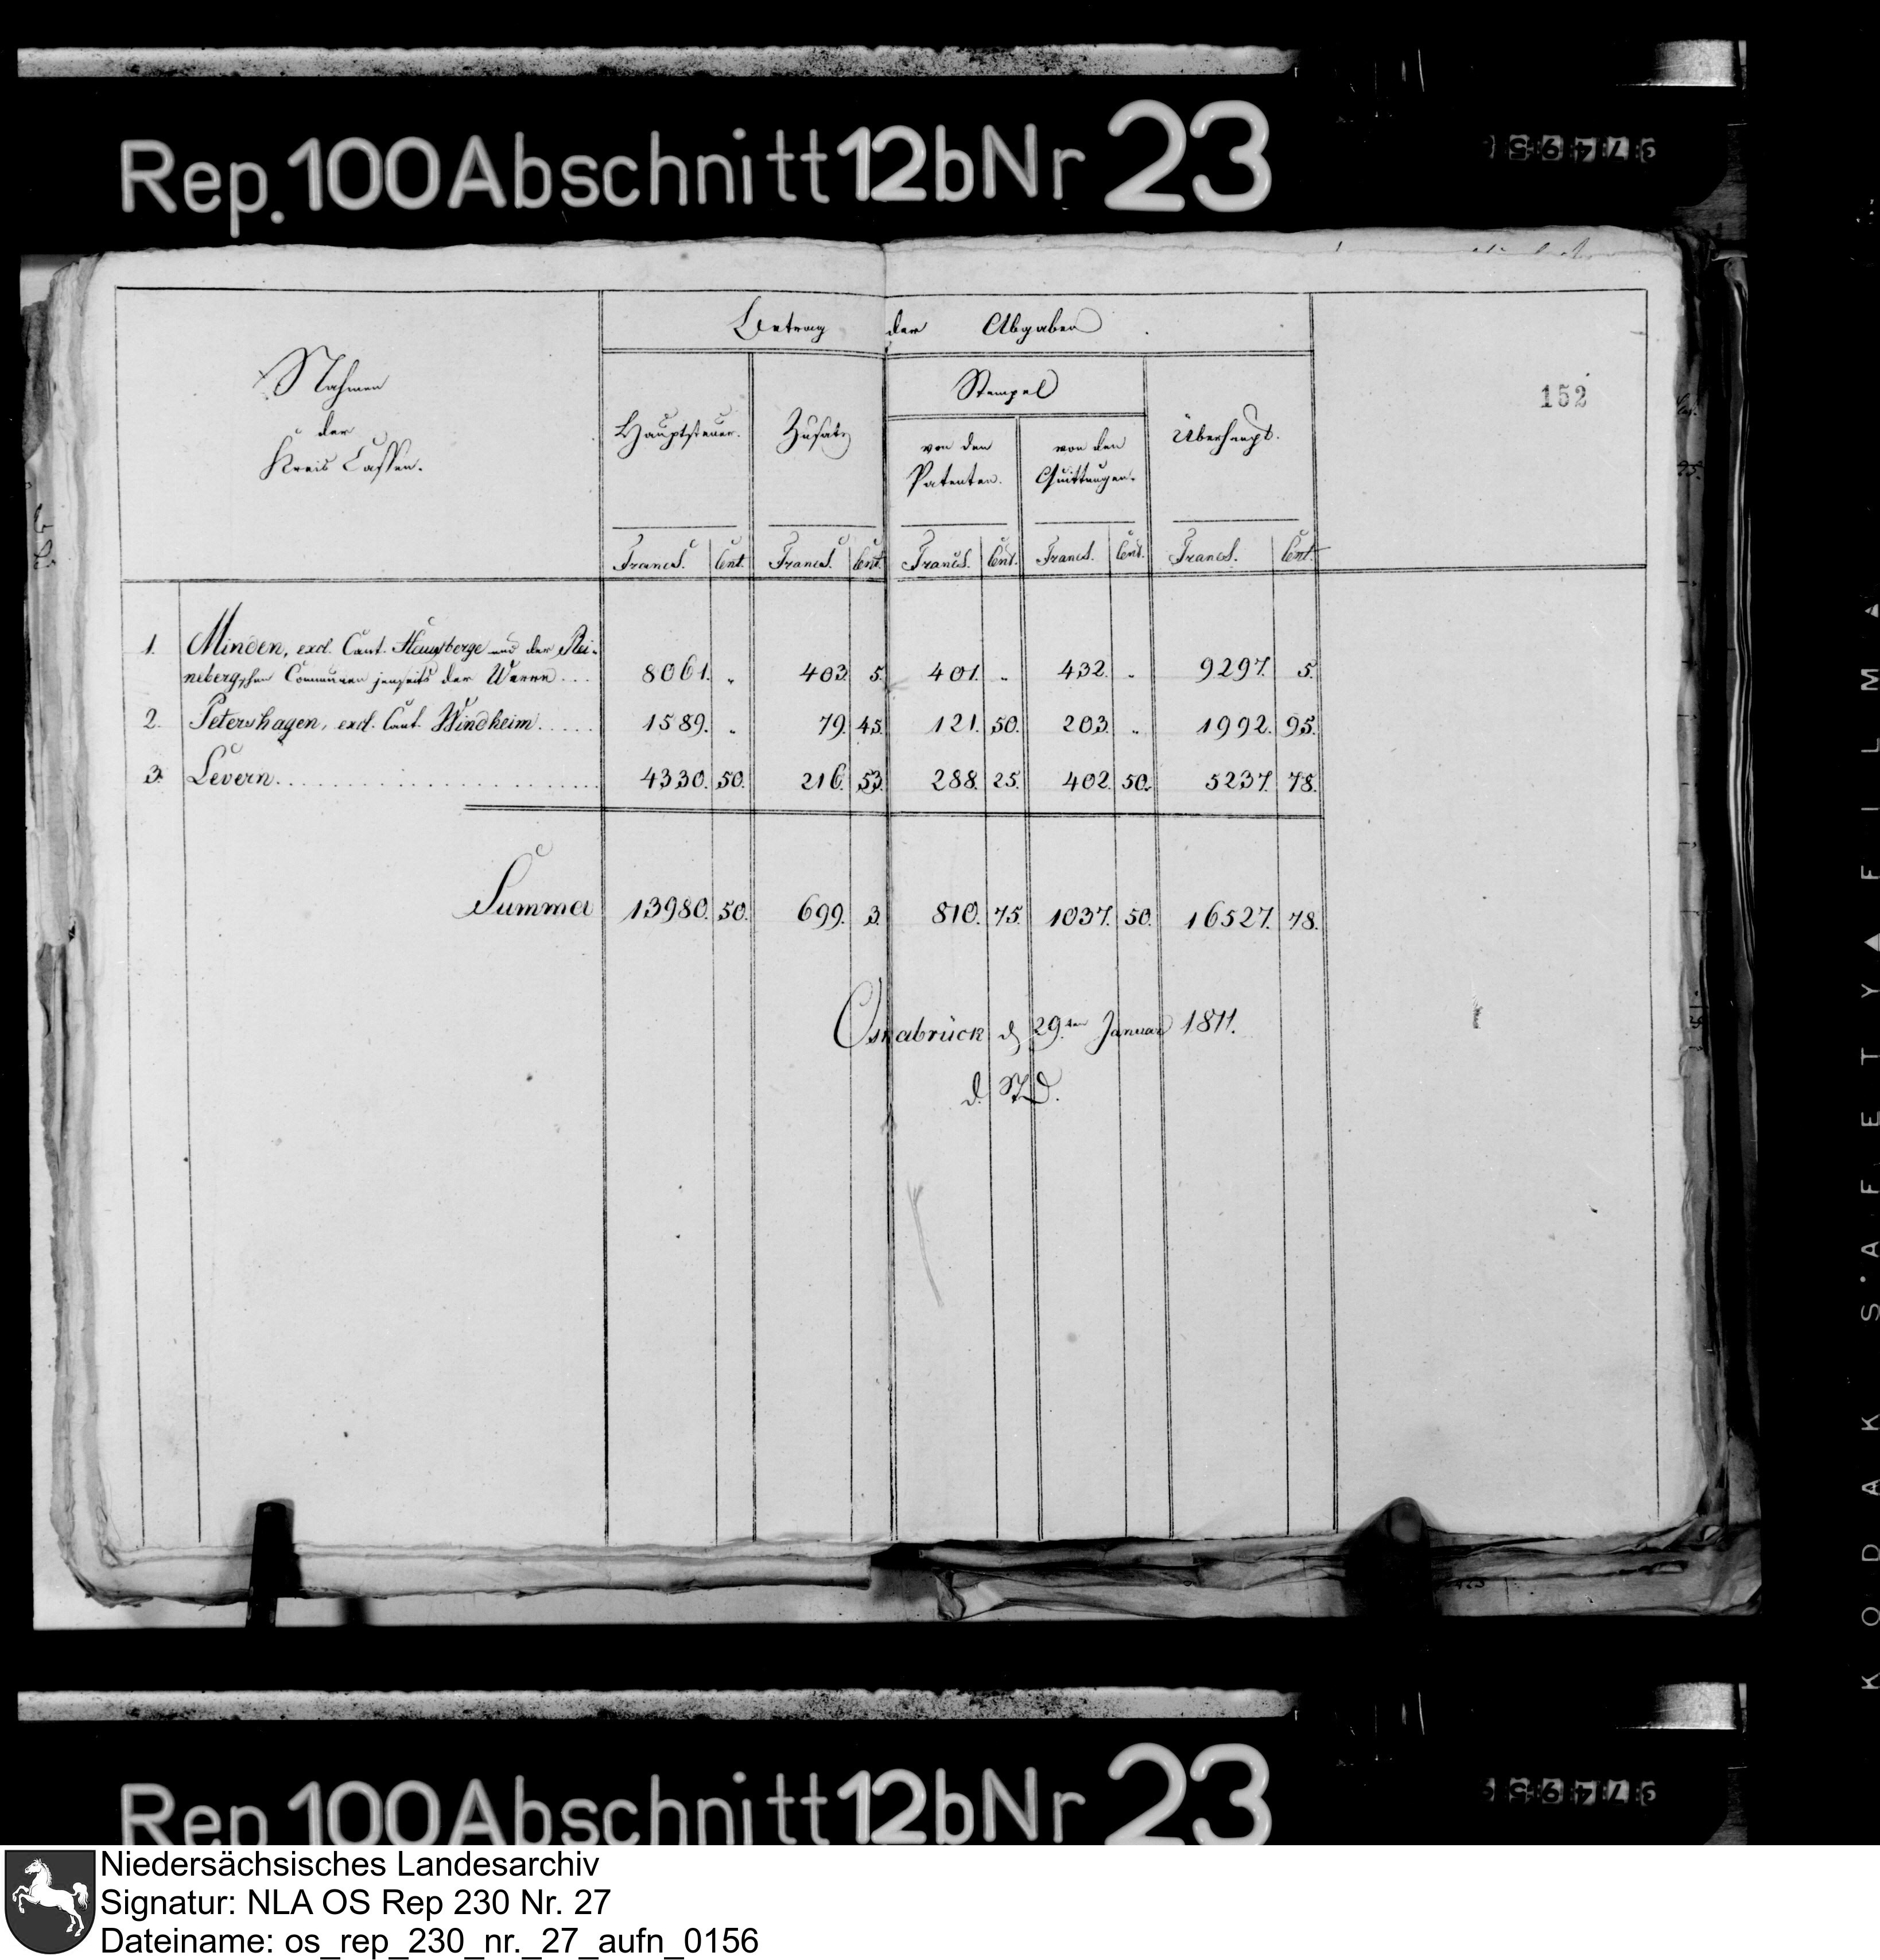 Rep. 100 Abschnitt 12b Nr 23
152
Betrag der Abgaben
Nahmen
der
Kreis Cassen.
Hauptsteuer.
Zusatz
Stempel
von den
Patenten.
von den
Quittungen.
Überhaupt.
Francs. Cent. Francs. Cent. Francs. Cent. Francs. Cent. Francs. Cent.
1. Minden, excl. Cant. Hausberge und der Rei-
nebergschen Communen jenseits der Werre... 8061. „ 403. 5. 401. „ 432. „ 9297. 5.
2. Petershagen, excl. Cant. Windheim..... 1589. „ 79. 45. 121. 50. 203. „ 1992. 95.
3. Levern..................... 4330. 50. 216. 53. 288. 25. 402. 50. 5237. 78.
Summa 13980. 50. 699. 3. 810. 75. 1037. 50. 16527. 78.
Osnabrück d 29ten Januar 1811.
Rep 100 Abschnitt 12b Nr 23
KODAK SAFETY FILM
Niedersächsisches Landesarchiv
Signatur: NLA OS Rep 230 Nr. 27
Dateiname: os_rep_230_nr._27_aufn_0156